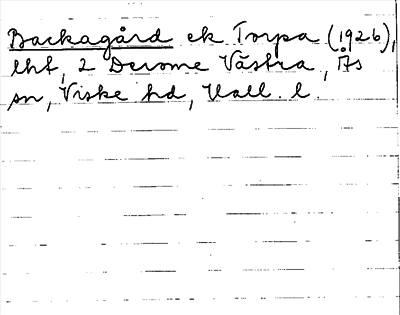 Backagård ek Torpa (1926),
lht, 2 Derome Västra, Ås
sn, Viske hd, Hall. l.